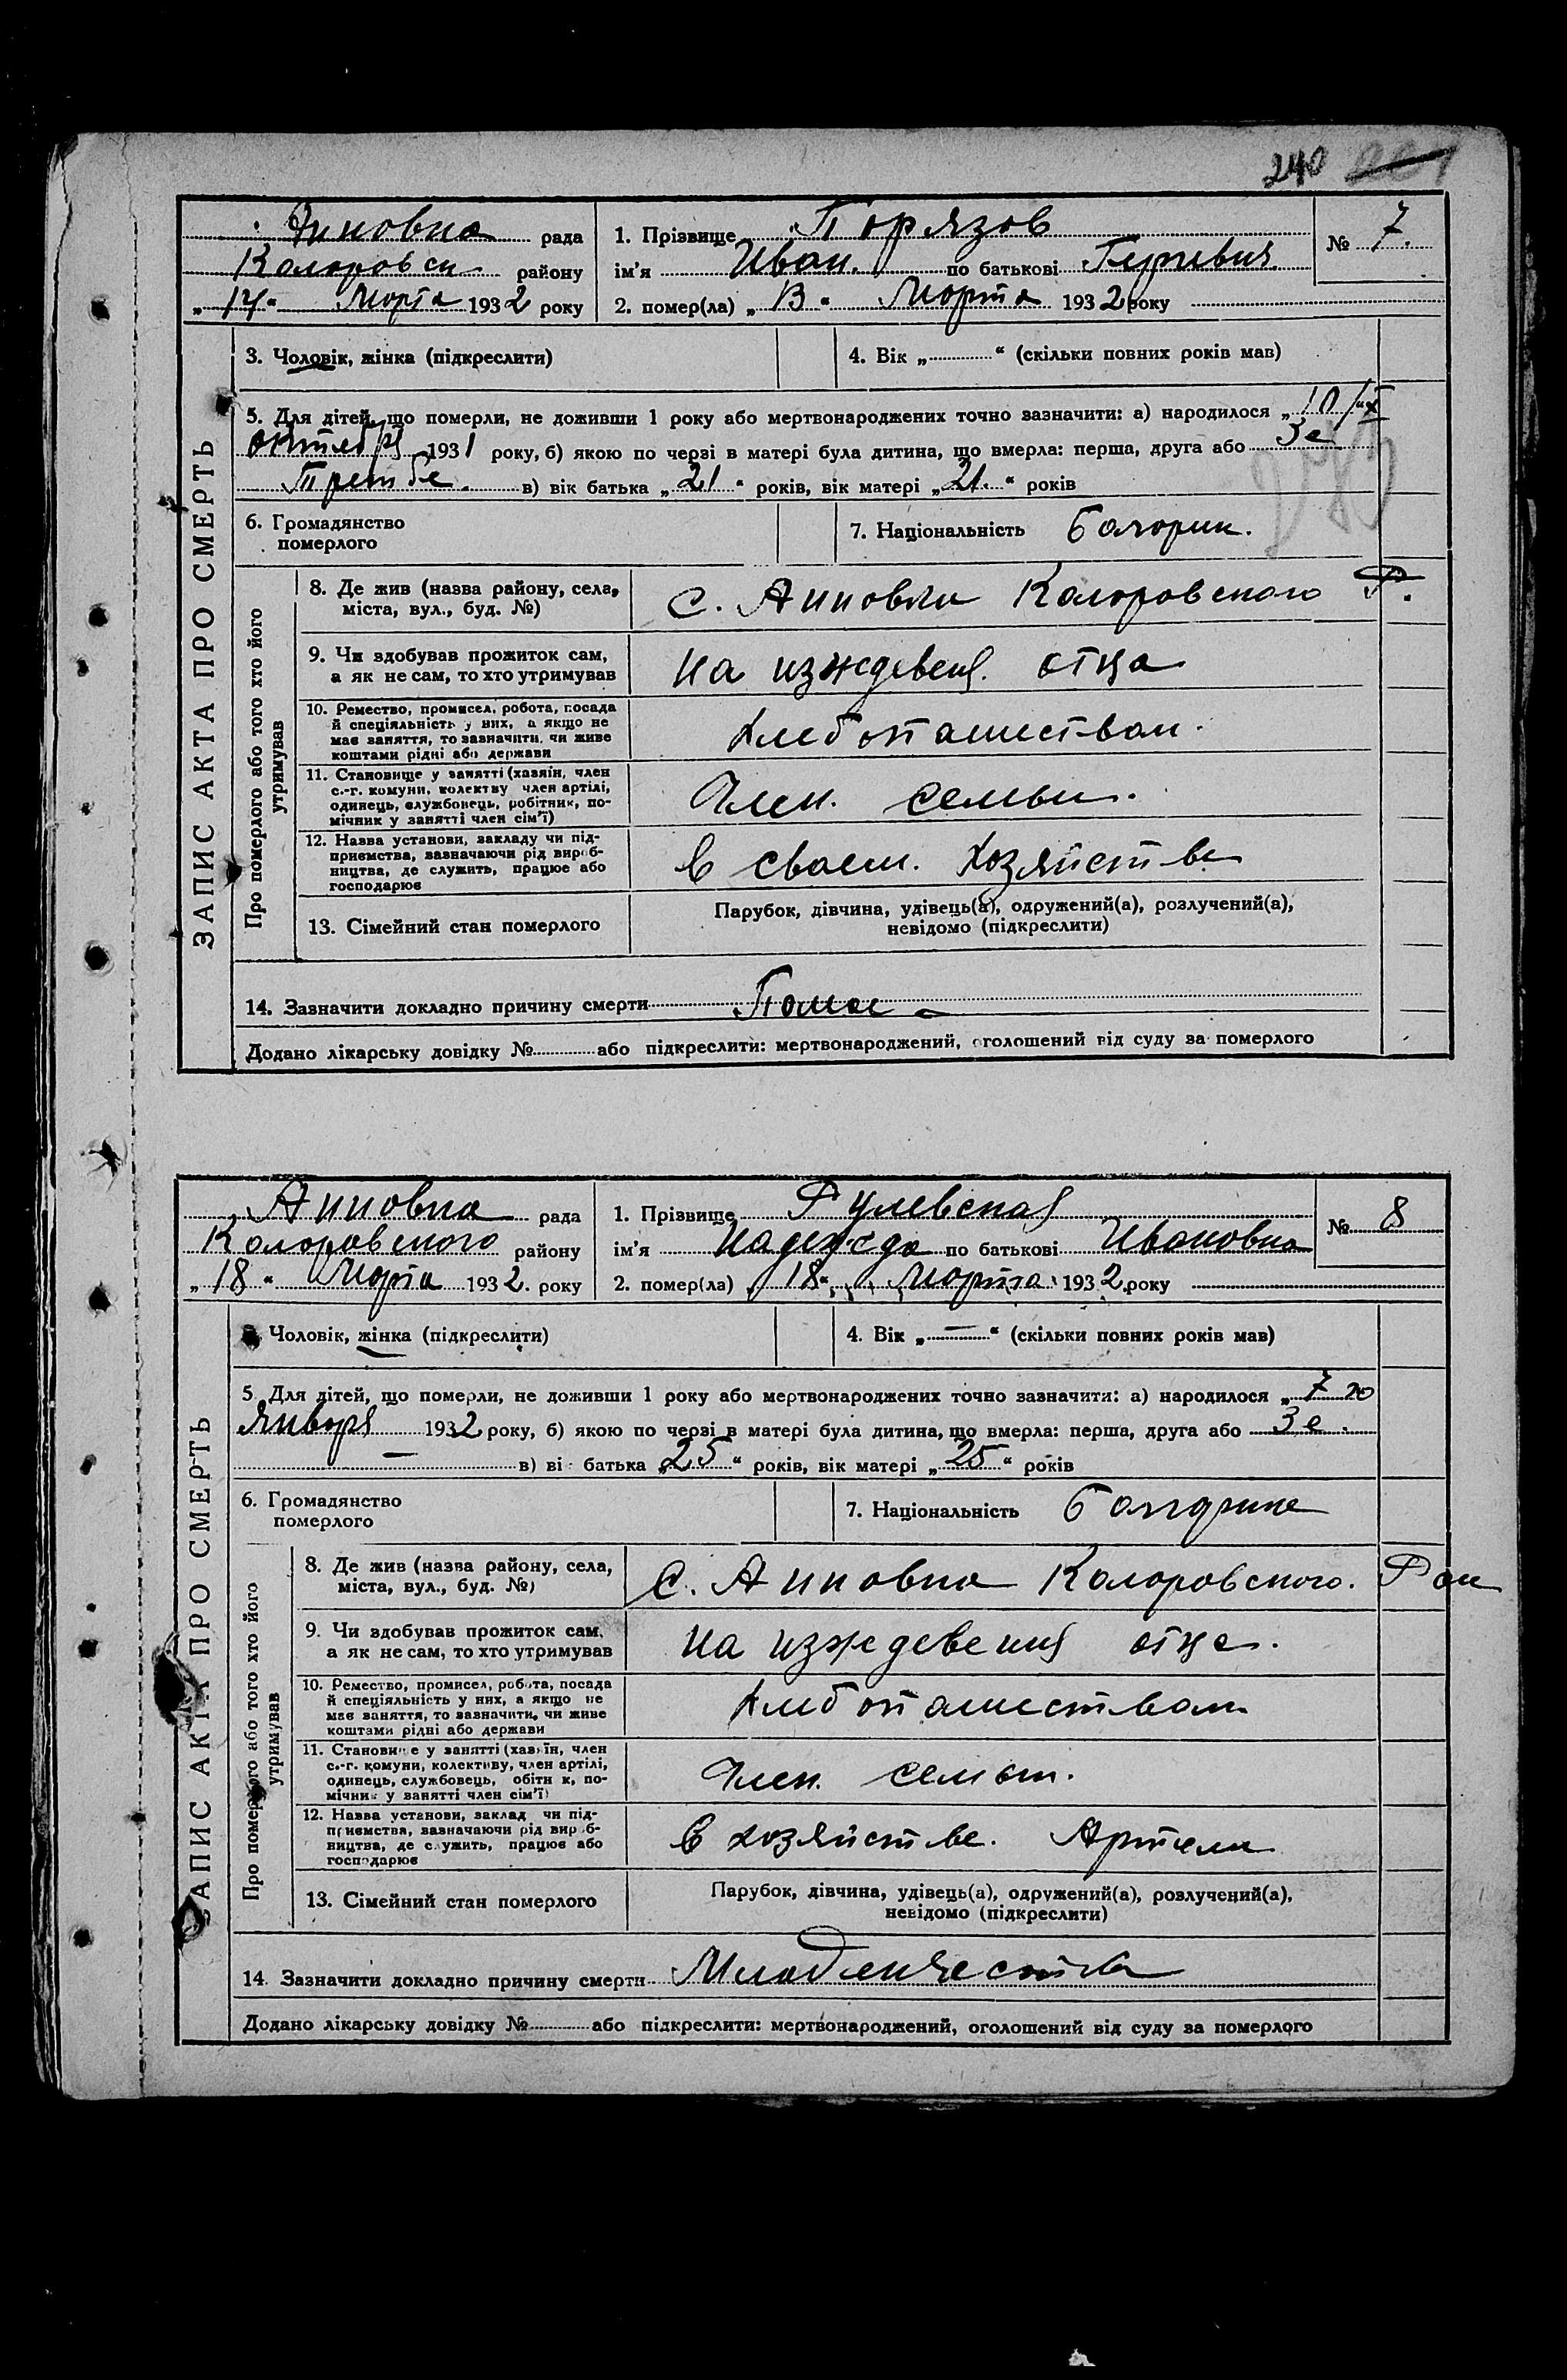 240 201
Анновка рада
1. Прізвище Порязов
№ 7.
Коларовск району
ім'я Иван. по батькові
„14“ Марта 1932 року
2. помер(ла) „13“ Марта 1932 року
ЗАПИС АКТА ПРО СМЕРТЬ
3. Чоловік, жінка (підкреслити)
4. Вік „ “ (скільки повних років мав)
5. Для дітей, що померли, не доживши 1 року або мертвонароджених точно зазначити: а) народилося „10/X
октября 1931 року, б) якою по черзі в матері була дитина, що вмерла: перша, друга або 3е
в) вік батька „21“ років, вік матері „21.“ років
6. Громадянство
померлого
7. Національність Болгорин.
Про померлого або того хто його
утримував
8. Де жив (назва району, села,
міста, вул., буд. №)
с. Анновки Коларовского Р.
9. Чи здобував прожиток сам,
а як не сам, то хто утримував
на иждевен. отца
10. Ремество, промисел, робота, посада
й спеціяльність у них, а якщо не
має заняття, то зазначити, чи живе
коштами рідні або держави
Хлебопашеством.
11. Становище у занятті (хазяїн, член
с.-г. комуни, колективу член артілі,
одинець, службовець, робітник, по-
мічник у занятті член сім'ї)
Член. семьи.
12. Назва установи, закладу чи під-
приємства, зазначаючи рід вироб-
ництва, де служить, працює або
господарює
в своем. хозяйстве
13. Сімейний стан померлого
Парубок, дівчина, удівець(а), одружений(а), розлучений(а),
невідомо (підкреслити)
14. Зазначити докладно причину смерти
Додано лікарську довідку № або підкреслити: мертвонароджений, оголошений від суду за померлого
Анновка рада
1. Прізвище Рулевская
№ 8
Коларовского району
ім'я Надежда по батькові Ивановна
„18“ Марта 1932. року
2. помер(ла) „18“ Марта 1932 року
ЗАПИС АКТА ПРО СМЕРТЬ
3. Чоловік, жінка (підкреслити)
4. Вік „—“ (скільки повних років мав)
5. Для дітей, що померли, не доживши 1 року або мертвонароджених точно зазначити: а) народилося „7 го
Января 1932 року, б) якою по черзі в матері була дитина, що вмерла: перша, друга або 3е.
— в) ві батька „25“ років, вік матері „25“ років
6. Громадянство
померлого
7. Національність Болгорине
Про померлого або того хто його
утримував
8. Де жив (назва району, села,
міста, вул., буд. №)
С. Анновка Коларовского. Рай
9. Чи здобував прожиток сам,
а як не сам, то хто утримував
на иждевения отца.
10. Ремество, промисел, робота, посада
й спеціяльність у них, а якщо не
має заняття, то зазначити, чи живе
коштами рідні або держави
Хлебопашеством
11. Становище у занятті (хазяїн, член
с.-г. комуни, колективу, член артілі,
одинець, службовець, обітник, по-
мічник у занятті член сім'ї)
Член. семьи.
12. Назва установи, заклад чи під-
приємства, зазначаючи рід вироб-
ництва, де служить, працює або
господарює
в хозяйстве. Артели
13. Сімейний стан померлого
Парубок, дівчина, удівець(а), одружений(а), розлучений(а),
невідомо (підкреслити)
14. Зазначити докладно причину смерти Младенчества
Додано лікарську довідку № або підкреслити: мертвонароджений, оголошений від суду за померлого